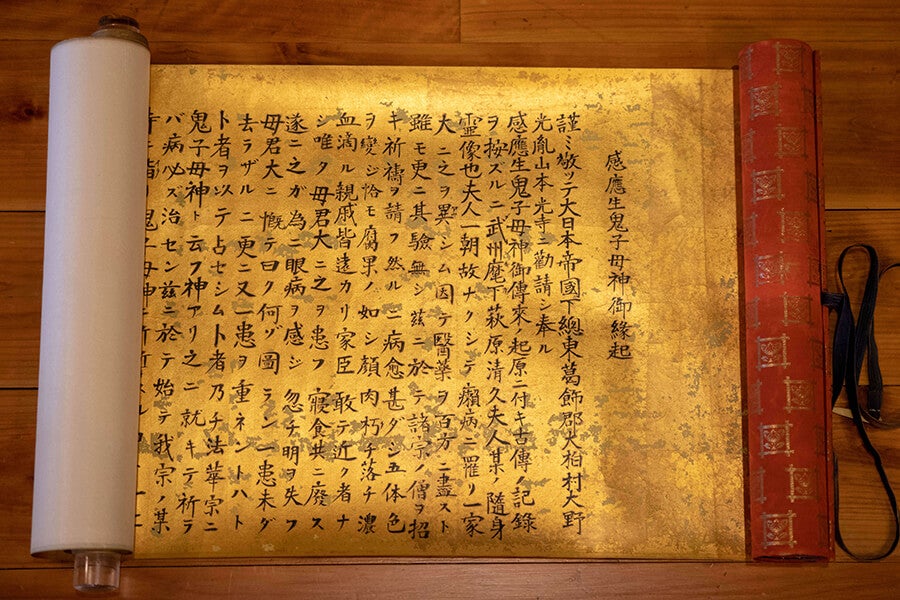 感應生鬼子母神御緣起
謹ミ敬ツテ大日本帝國下總東葛飾郡大柏村大野
光胤山本光寺ニ勸請シ奉ル
感應生鬼子母神御傳來ノ起原ニ付キ古傳ノ記錄
ヲ按ズルニ武州麾下萩原清久夫人某ノ隨身
靈像也夫人一朝故ナクシテ癩病ニ罹リ一家
大ニ之ヲ異シム因テ醫藥ヲ百方ニ盡スト
雖モ更ニ其驗無シ茲ニ於テ諸宗ノ僧ヲ招
キ祈禱ヲ請フ然ルニ病愈甚ダシ五体色
ヲ變シ恰モ腐果ノ如シ顔肉朽チ落チ濃
血滴ル親戚皆遠カリ家臣敢テ近ク者ナ
シ唯ク母君大ニ之ヲ患フ寢食共ニ廢ス
遂ニ之ガ為ニ眼病ヲ感ジ忽チ明ヲ失フ
母君大ニ慨テ曰ク何ゾ圖ラン一患未ダ
去ラザルニ更ニ又一患ヲ重ネントハト
ト者ヲ以テ占セシム卜者乃チ法華宗ニ
鬼子母神ト云フ神アリ之ニ就キテ祈ラ
バ病必ス治セン茲ニ於テ始テ我宗ノ某
鬼子母神ニ祈